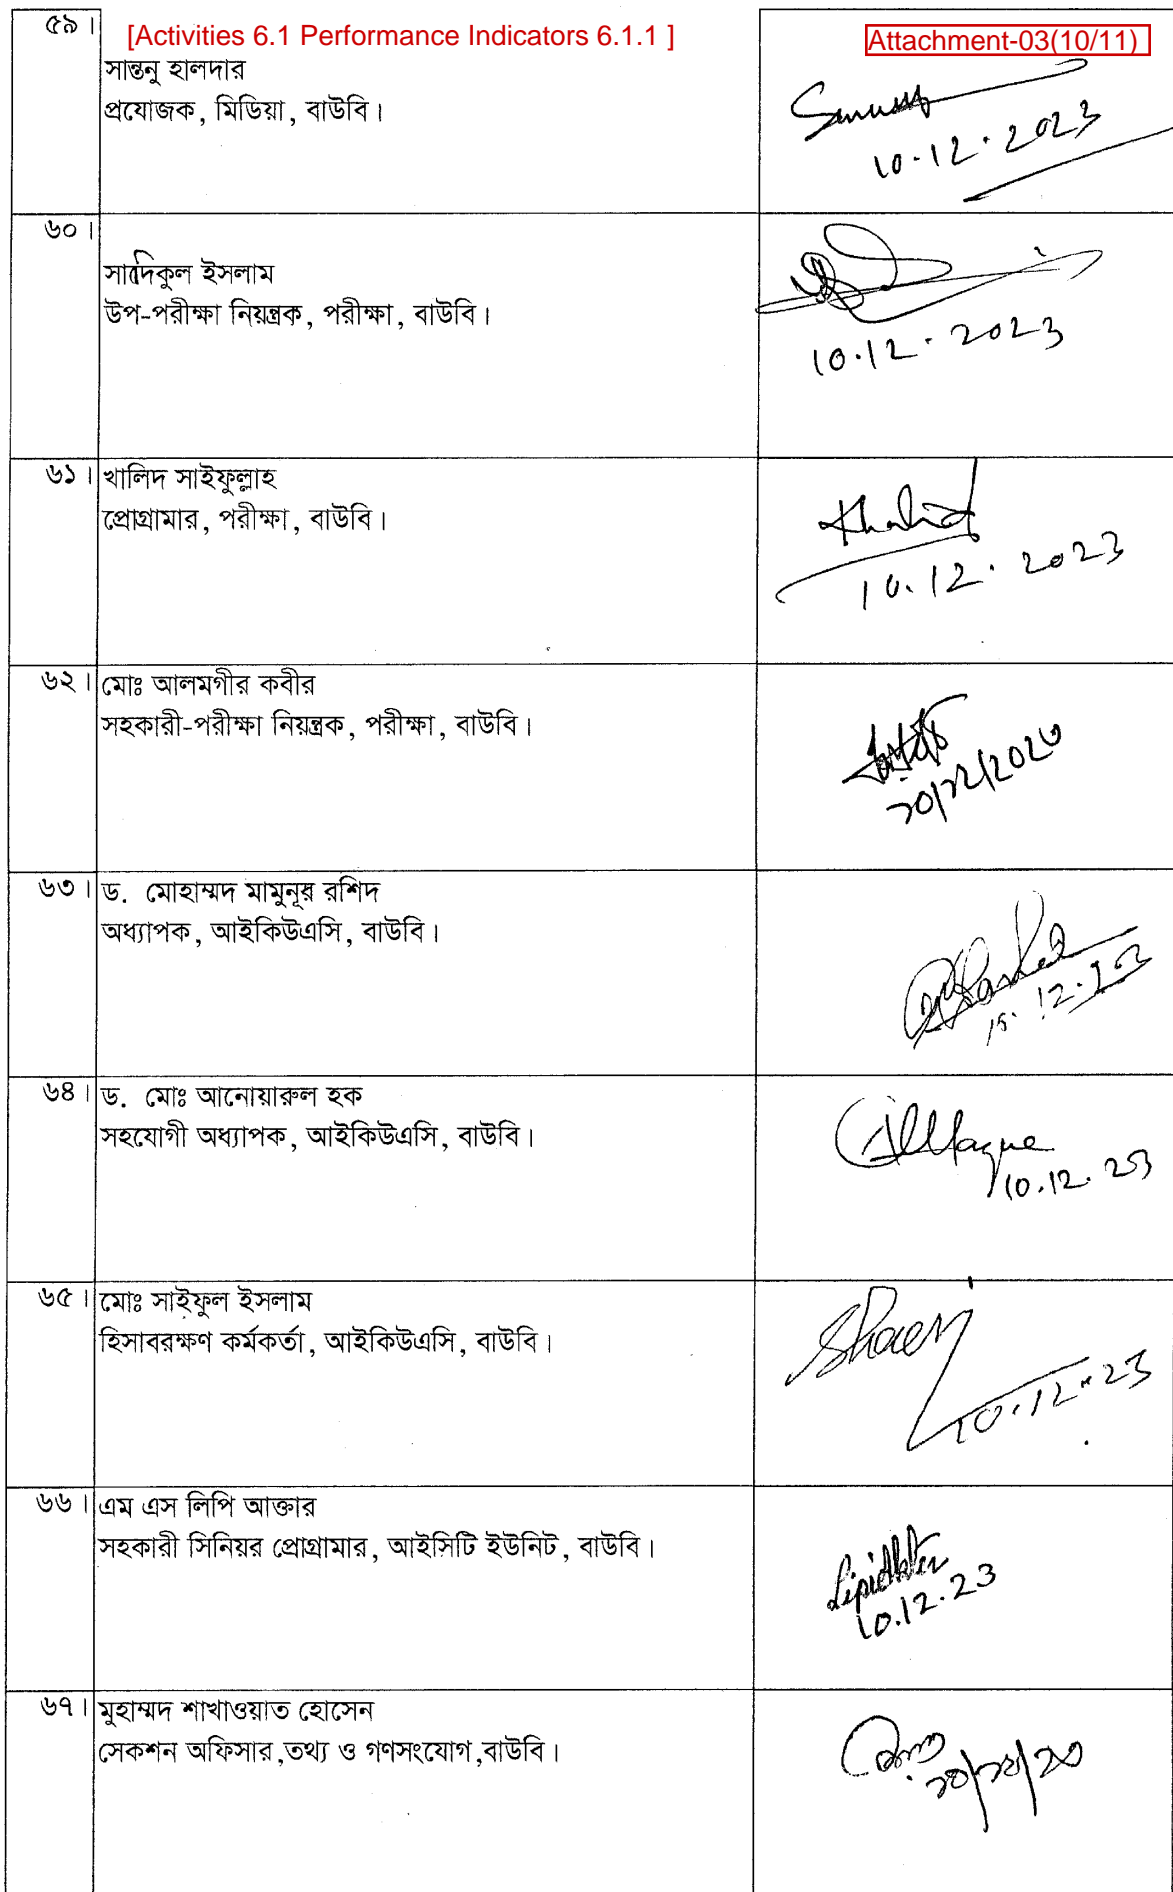 ৫৯।
[Activities 6.1 Performance Indicators 6.1.1 ]
Attachment-03(10/11)
সান্তনু হালদার
প্রযোজক, মিডিয়া, বাউবি।
10.12.2023
৬০।
সাদিকুল ইসলাম
উপ-পরীক্ষা নিয়ন্ত্রক, পরীক্ষা, বাউবি।
10.12.2023
৬১। খালিদ সাইফুল্লাহ
প্রোগ্রামার, পরীক্ষা, বাউবি।
Khalid
10.12.2023
৬২। মোঃ আলমগীর কবীর
সহকারী-পরীক্ষা নিয়ন্ত্রক, পরীক্ষা, বাউবি।
১০/১২/২০২৩
৬৩। ড. মোহাম্মদ মামুনূর রশিদ
অধ্যাপক, আইকিউএসি, বাউবি।
৬৪। ড. মোঃ আনোয়ারুল হক
সহযোগী অধ্যাপক, আইকিউএসি, বাউবি।
10.12.23
৬৫। মোঃ সাইফুল ইসলাম
হিসাবরক্ষণ কর্মকর্তা, আইকিউএসি, বাউবি।
10.12.23
৬৬। এম এস লিপি আক্তার
সহকারী সিনিয়র প্রোগ্রামার, আইসিটি ইউনিট, বাউবি।
LipiAkter
10.12.23
৬৭। মুহাম্মদ শাখাওয়াত হোসেন
সেকশন অফিসার,তথ্য ও গণসংযোগ,বাউবি।
১০/১২/২৩